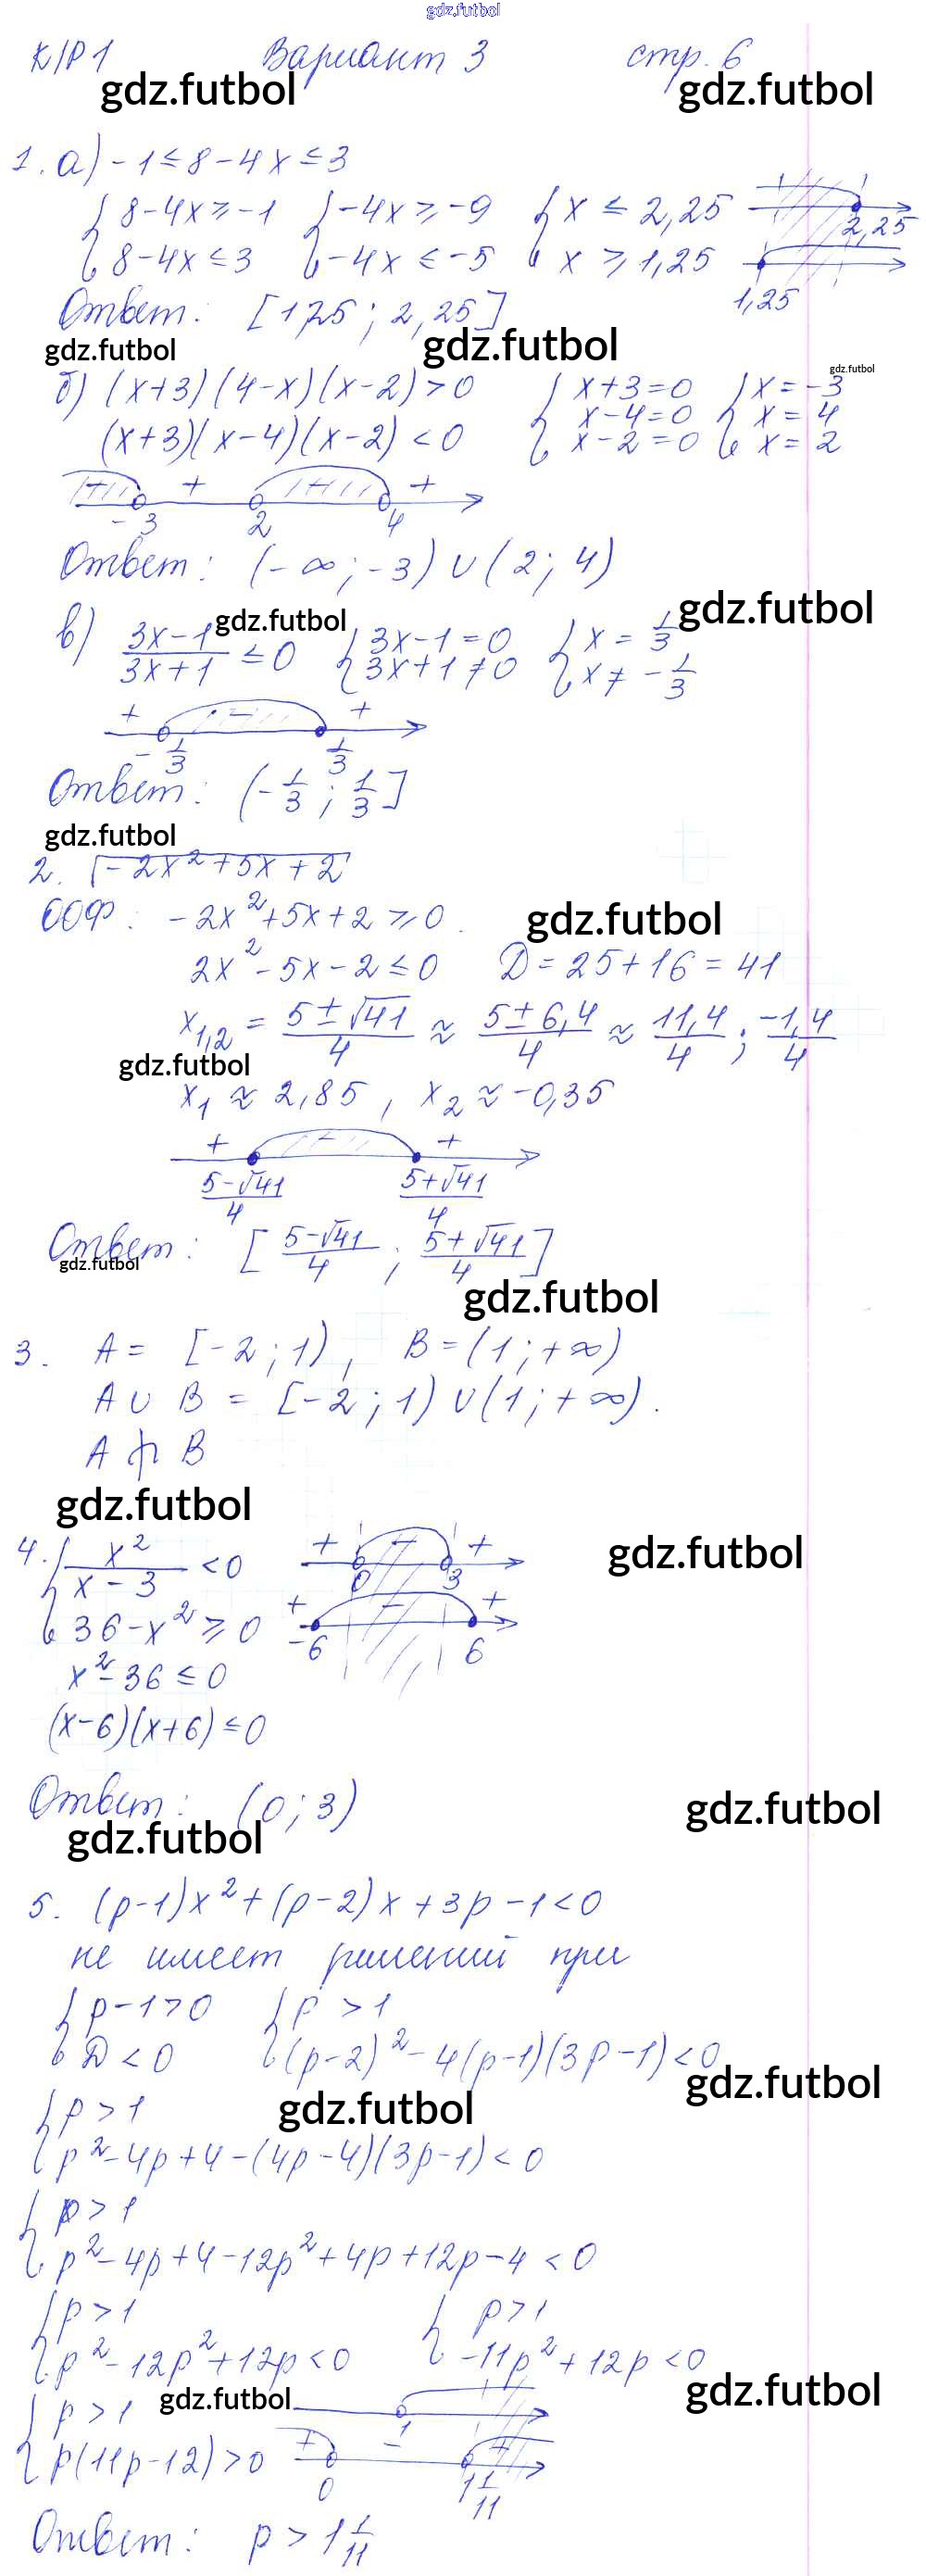 gdz.futbol
К/Р 1 Вариант 3 стр. 6
gdz.futbol gdz.futbol
1. а) -1 ≤ 8 - 4x ≤ 3
{ 8-4x ≥ -1 { -4x ≥ -9 { x ≤ 2,25 2,25
8-4x ≤ 3 -4x ≤ -5 x ≥ 1,25 1,25
Ответ: [1,25; 2,25]
gdz.futbol gdz.futbol gdz.futbol
б) (x+3)(4-x)(x-2) > 0 { x+3=0 { x=-3
x-4=0 x=4
(x+3)(x-4)(x-2) < 0 x-2=0 x=2
- + - +
-3 2 4
Ответ: (-∞; -3) ∪ (2; 4)
gdz.futbol gdz.futbol
в) (3x-1)/(3x+1) ≤ 0 { 3x-1=0 { x = 1/3
3x+1≠0 x ≠ -1/3
+ - +
-1/3 1/3
Ответ: (-1/3; 1/3]
gdz.futbol
2. √(-2x²+5x+2)
ООФ: -2x²+5x+2 ≥ 0. gdz.futbol
2x²-5x-2 ≤ 0 Д = 25+16 = 41
x₁,₂ = (5±√41)/4 ≈ (5±6,4)/4 ≈ 11,4/4; -1,4/4
gdz.futbol
x₁ ≈ 2,85, x₂ ≈ -0,35
+ - +
(5-√41)/4 (5+√41)/4
Ответ: [(5-√41)/4; (5+√41)/4]
gdz.futbol gdz.futbol
3. A = [-2; 1), B = (1; +∞)
A ∪ B = [-2; 1) ∪ (1; +∞).
A ⋔ B
gdz.futbol
4. { x²/(x-3) < 0 + - + gdz.futbol
0 3
36-x² ≥ 0 + - +
-6 6
x²-36 ≤ 0
(x-6)(x+6) ≤ 0
Ответ: (0; 3) gdz.futbol
gdz.futbol
5. (p-1)x²+(p-2)x+3p-1<0
не имеет решений при
{ p-1>0 { p > 1
Д < 0 (p-2)²-4(p-1)(3p-1)<0
gdz.futbol
{ p > 1 gdz.futbol
p²-4p+4-(4p-4)(3p-1) < 0
{ p > 1
p²-4p+4-12p²+4p+12p-4 < 0
{ p > 1 { p > 1
p²-12p²+12p < 0 -11p²+12p < 0
gdz.futbol gdz.futbol
{ p > 1 1
p(11p-12)>0 + - +
0 1 1/11
Ответ: p > 1 1/11